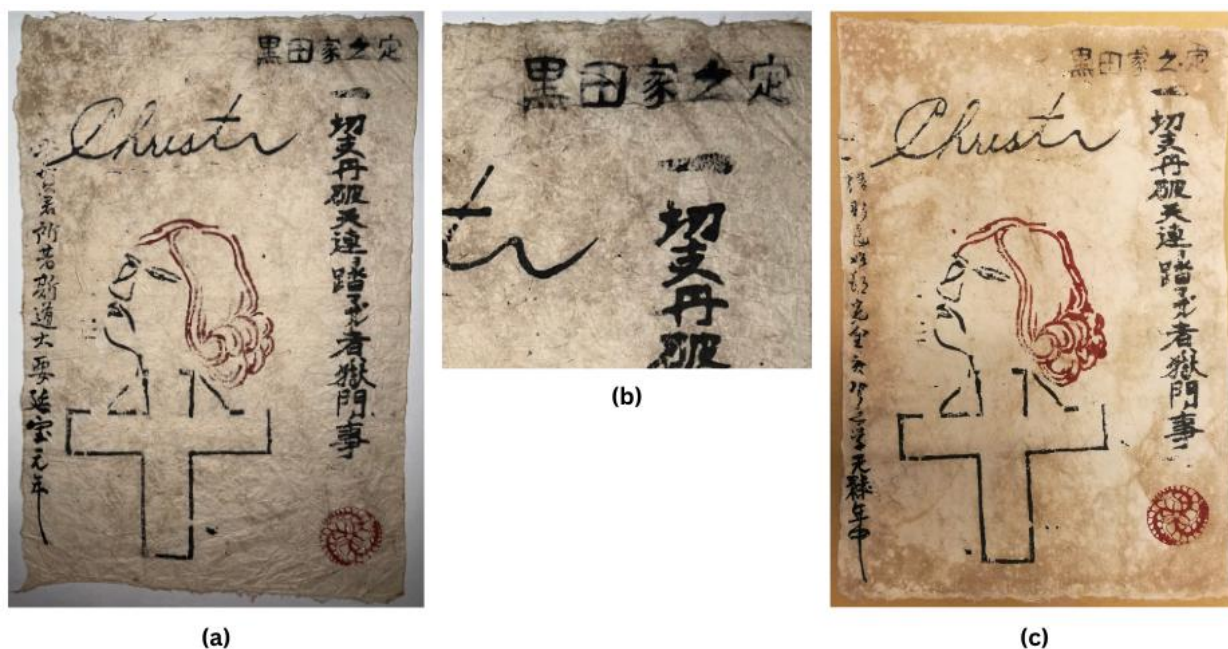 黒田家之定
Christr
一切支丹破天連踏者獄門事
所著新道大要延宝元年
(a)
黒田家之定
一切支丹破
(b)
黒田家之定
Christr
一切支丹破天連踏者獄門事
元禄年中
(c)